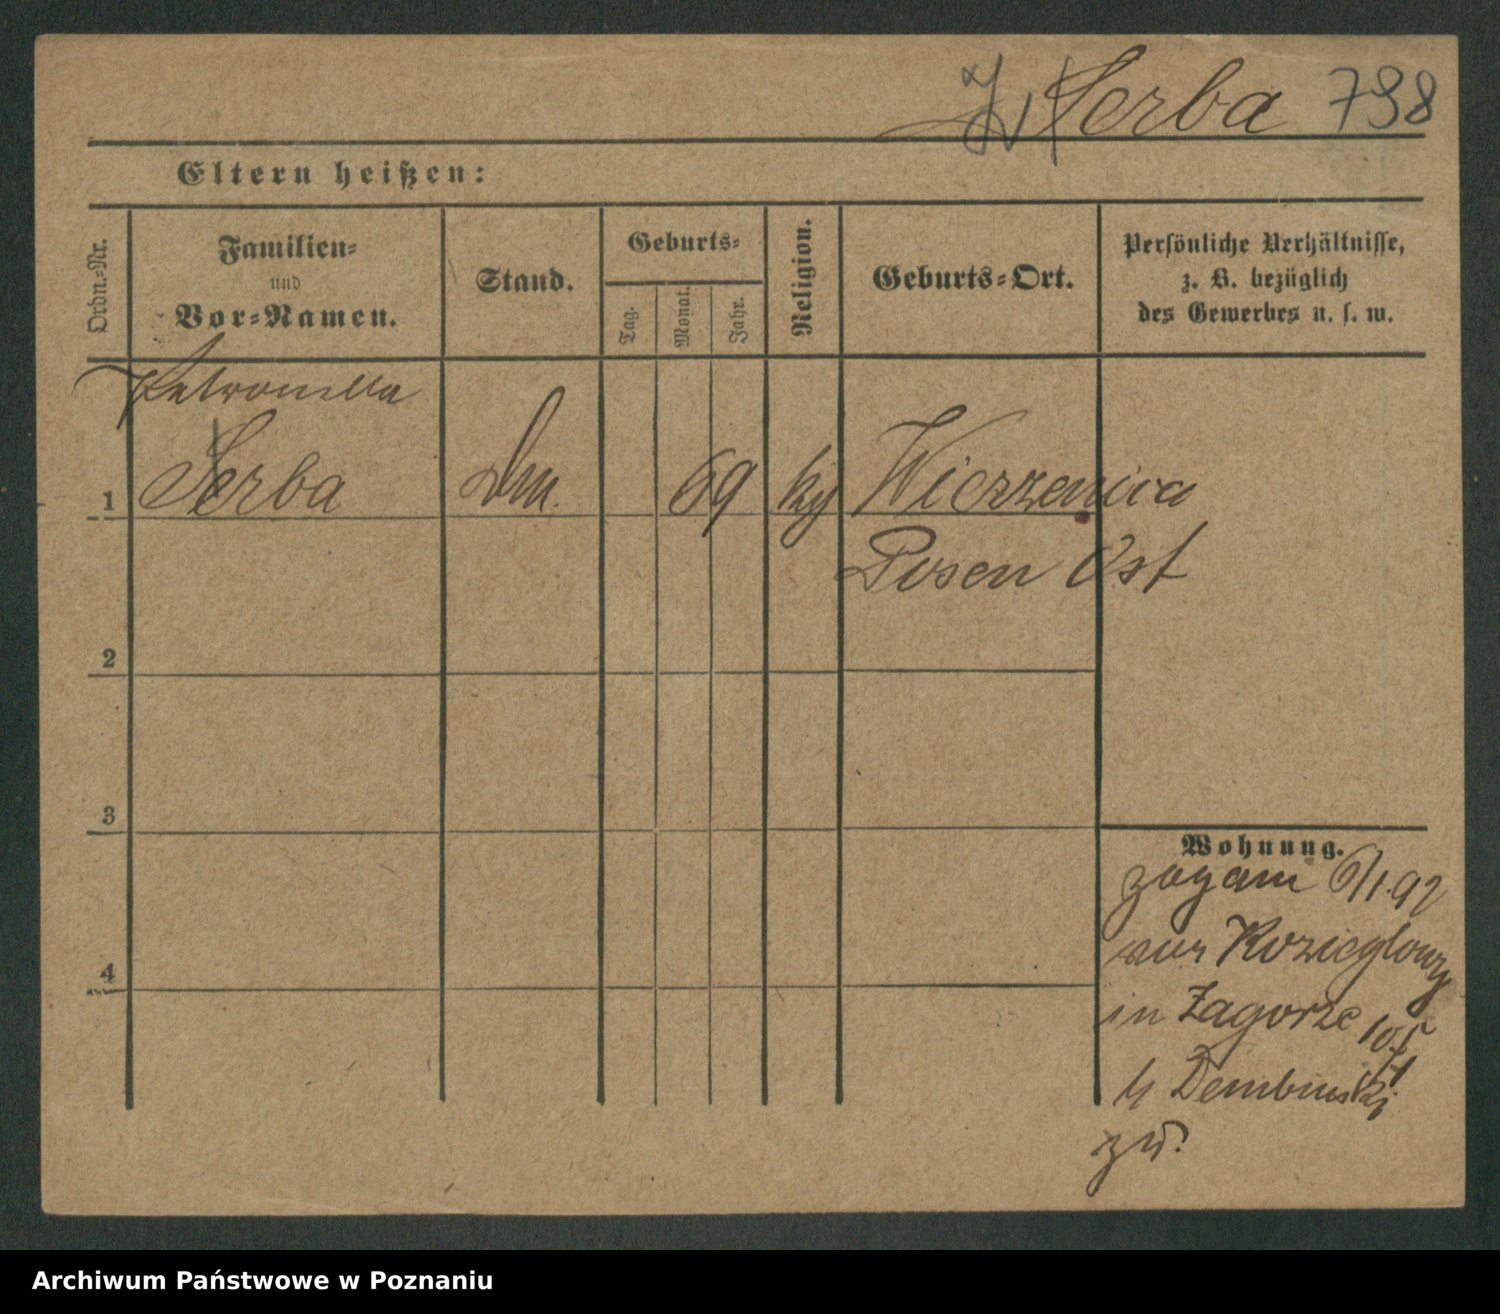 Serba 798
Eltern heißen:
Ordn.-Nr.
Familien-
und
Vor-Namen.
Stand.
Geburts-
Tag.
Monat.
Jahr.
Religion.
Geburts-Ort.
Persönliche Verhältnisse,
z. B. bezüglich
des Gewerbes u. s. w.
Petronella
1 Serba 69 Wierzenica
Posen Ost
2
3
4
Wohnung.
zogam 6/1.92
aus Kozieglowy
in Zagorze
b Dembinski
zu.
Archiwum Państwowe w Poznaniu